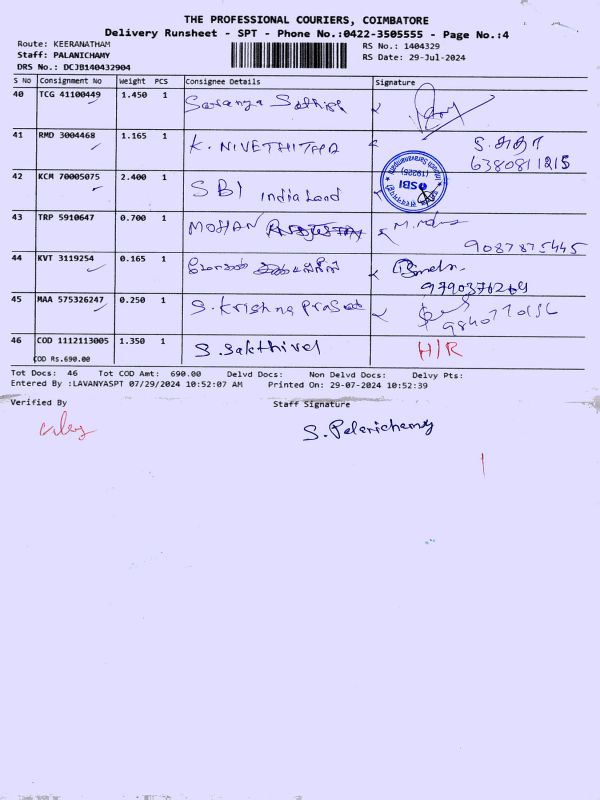 THE PROFESSIONAL COURIERS, COIMBATORE
Delivery Runsheet - SPT - Phone No.:0422-3505555 - Page No.:4
Route: KEERANATHAM
Staff: PALANICHAMY
DRS No.: DCJB140432904
RS No.: 1404329
RS Date: 29-Jul-2024
S No Consignment No Weight PCS Consignee Details Signature
40 TCG 41100449 1.450 1 Saranya
41 RMD 3004468 1.165 1 K. NIVETHITHA
6380811215
42 KCM 70005075 2.400 1 SBI India Land
SBI
43 TRP 5910647 0.700 1 MOHAN
9087875445
44 KVT 3119254 0.165 1
9790376264
45 MAA 575326247 0.250 1 S. Krishna Prasad
46 COD 1112113005 1.350 1 S. Sakthivel H/R
COD Rs.690.00
Tot Docs: 46 Tot COD Amt: 690.00 Delvd Docs: Non Delvd Docs: Delvy Pts:
Entered By :LAVANYASPT 07/29/2024 10:52:07 AM Printed On: 29-07-2024 10:52:39
Verified By Staff Signature
S. Palanichamy